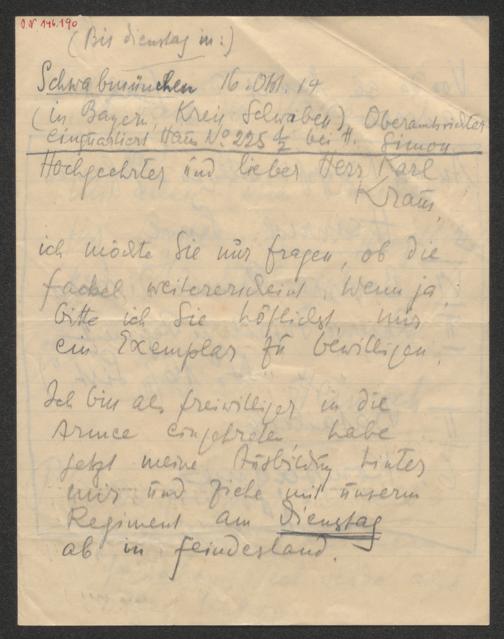 I.N. 146.190
(Bis Dienstag in:)
Schwabmünchen 16. Okt. 14
(in Bayern, Kreis Schwaben), Oberamtsrichter
einquartiert Haus No 225 1/2 bei H. Simon
Hochgeehrter und lieber Herr Karl
Kraus,
ich möchte Sie nur fragen, ob die
Fackel weitererscheint. Wenn ja,
bitte ich Sie höflichst, mir
ein Exemplar zu bewilligen.
Ich bin als Freiwilliger in die
Armee eingetreten habe
jetzt meine Ausbildung hinter
mir und ziehe mit unserm
Regiment am Dienstag
ab in Feindesland.